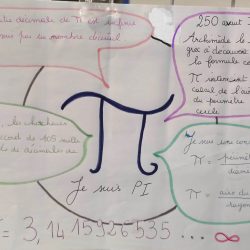 decimale de π est infinie
pas un nombre décimal
250 avant
Archimède le
grec a découvert
la formule
π intervient
calcul de l'aire
du périmètre
cercle
les chercheurs
record de 105 mille
de décimales de
Je suis une cons
π = périmè
diam
π = aire du
rayon
Je suis PI
= 3,1415926535 ... ∞